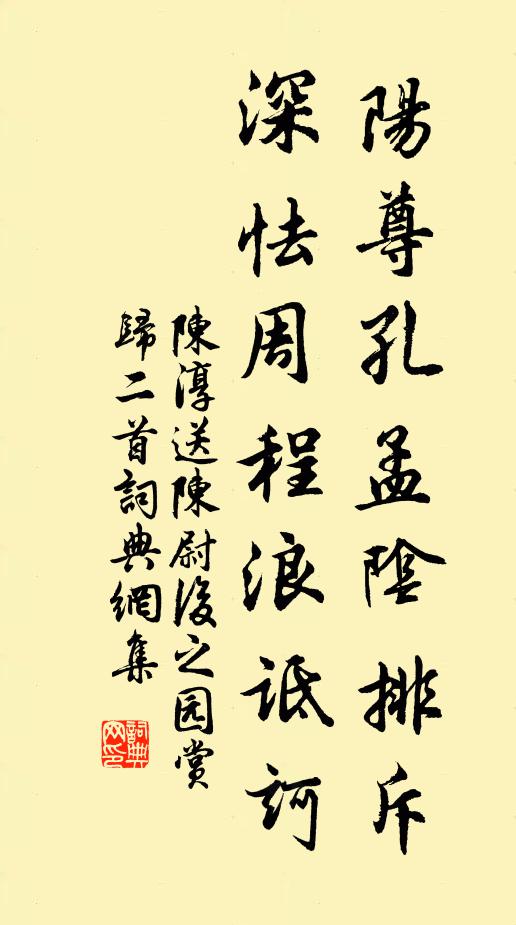 陽尊孔孟陰排斥
深怯周程浪詆訶
陳淳送陳尉後之园賞
歸二首詞典網集
詞典